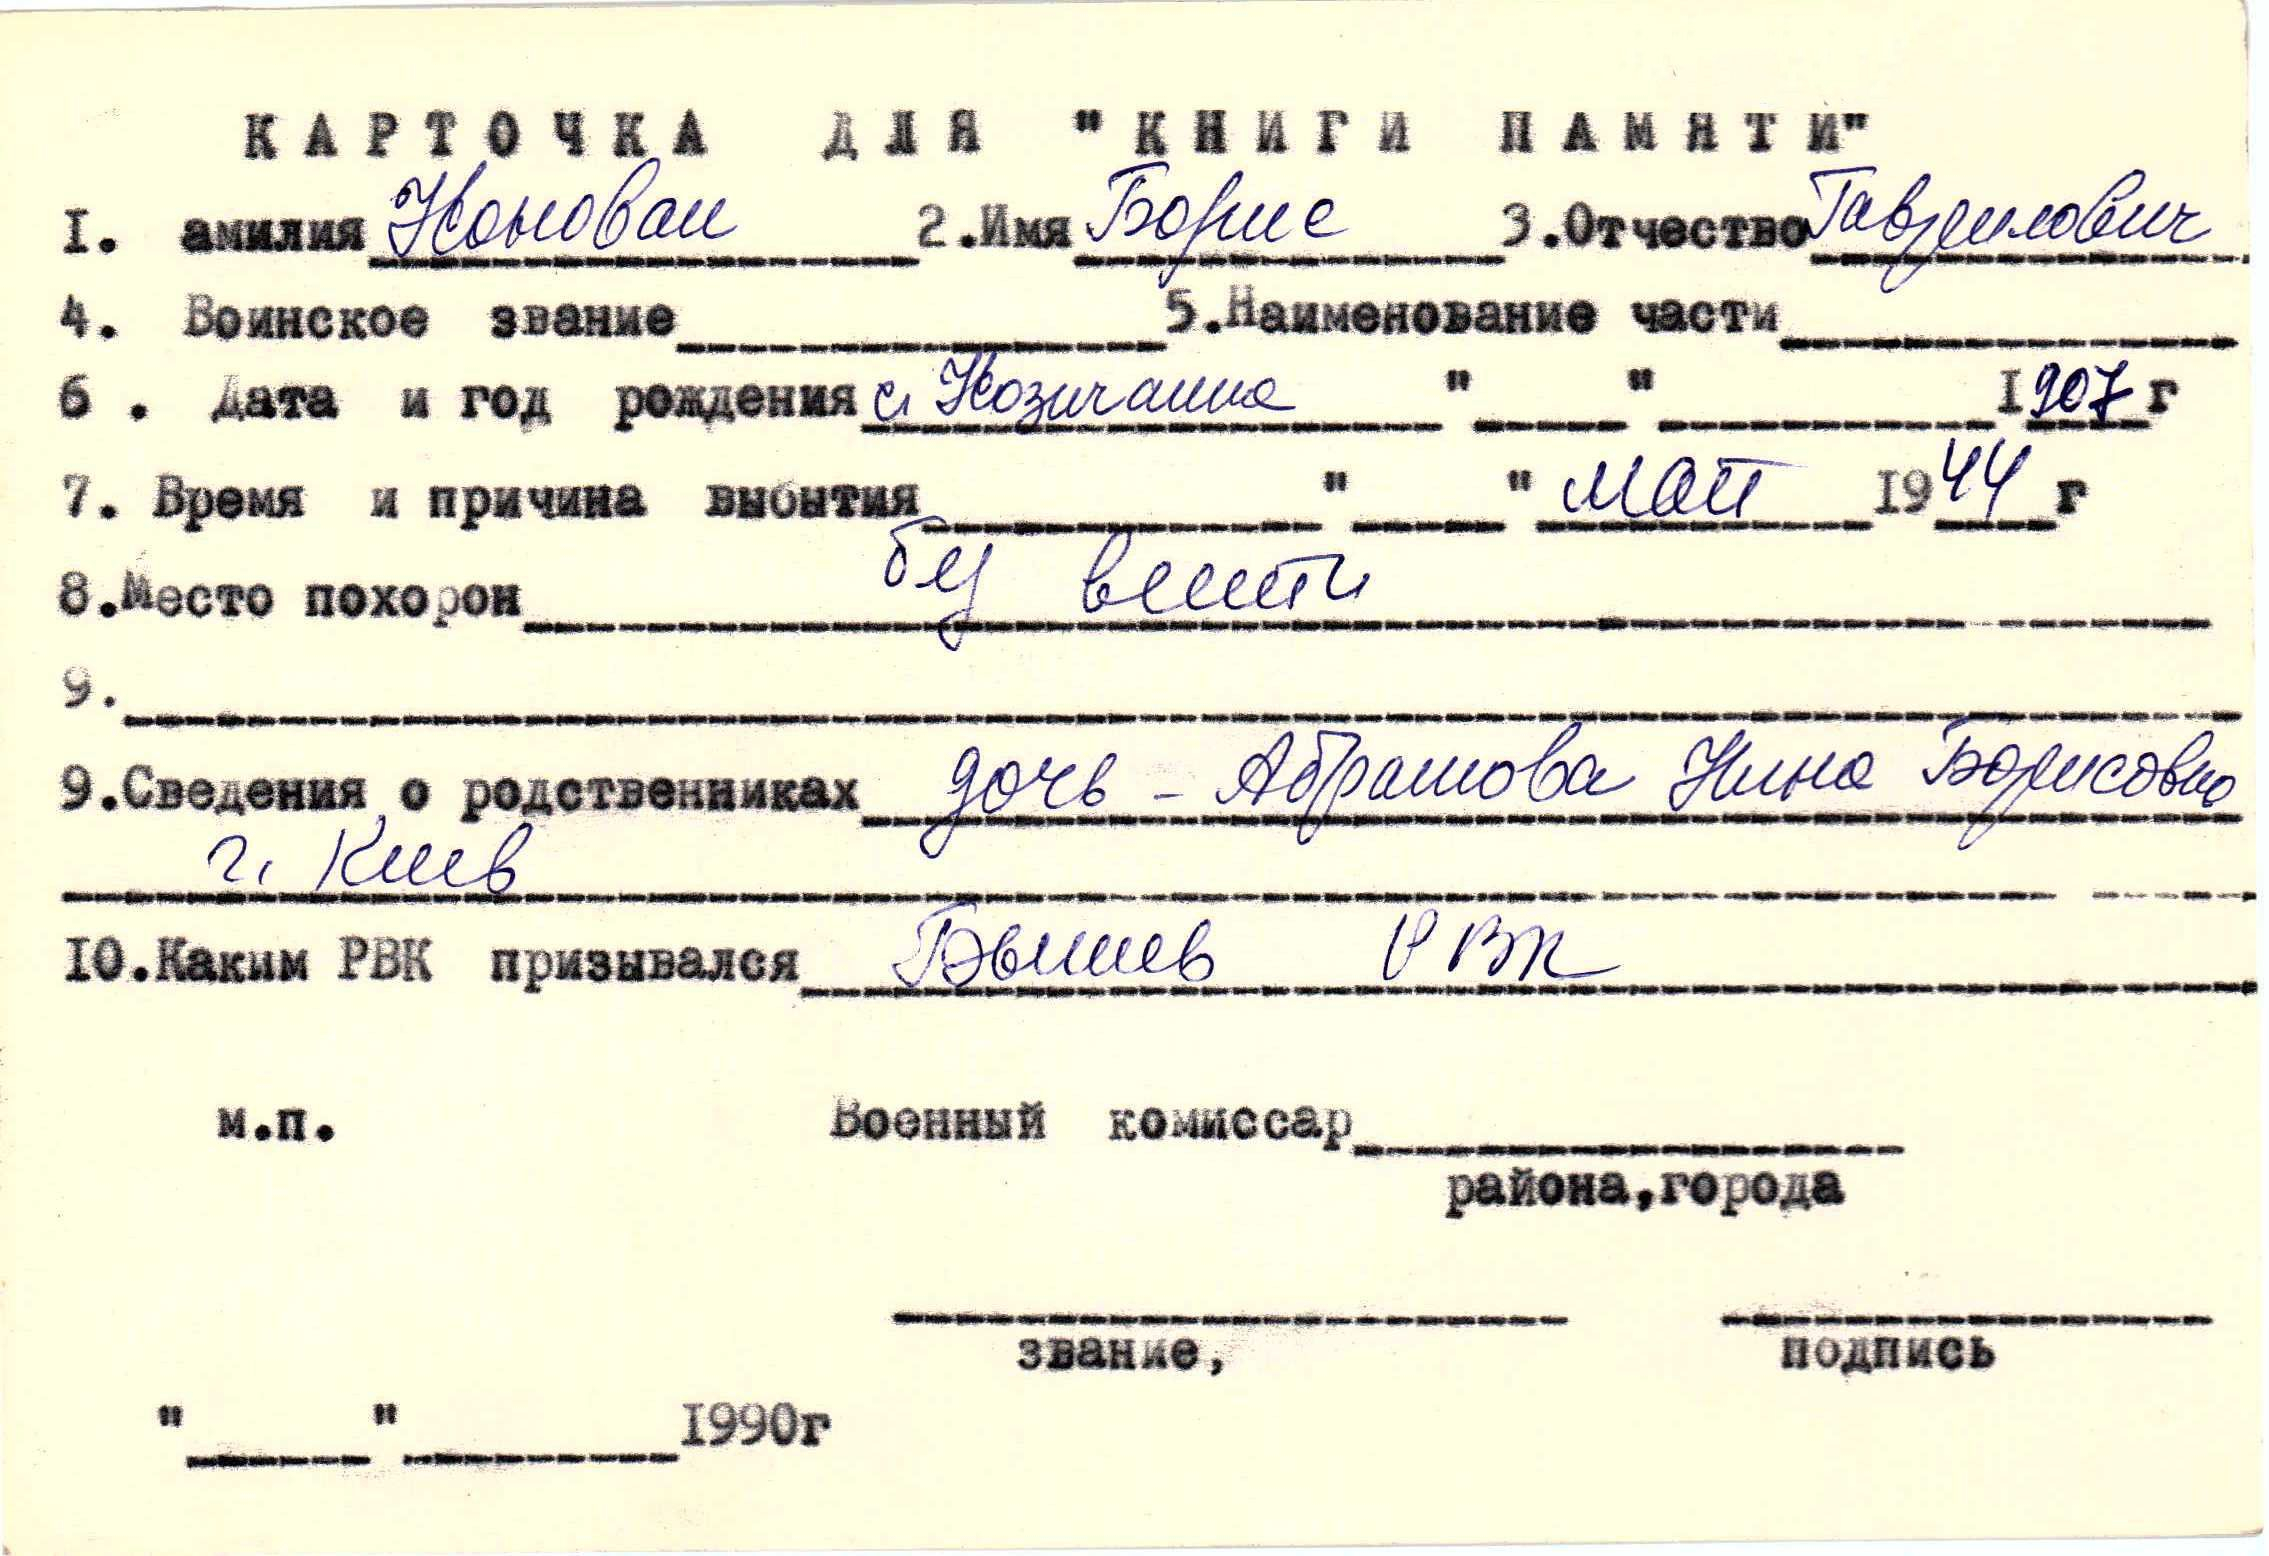 КАРТОЧКА ДЛЯ "КНИГИ ПАМЯТИ"
I. амилия Коновал 2.Имя Борис 3.Отчество Гаврилович
4. Воинское звание 5.Наименование части
6 . Дата и год рождения с. Козичанка " " I907г
7. Время и причина выбытия " " май I944г
8.Место похорон без вести
9.
9.Сведения о родственниках дочь - Абрамова Нина Борисовна
г. Киев
IO.Каким РВК призывался Бышев РВК
м.п. Военный комиссар
района,города
звание, подпись
" " I990г